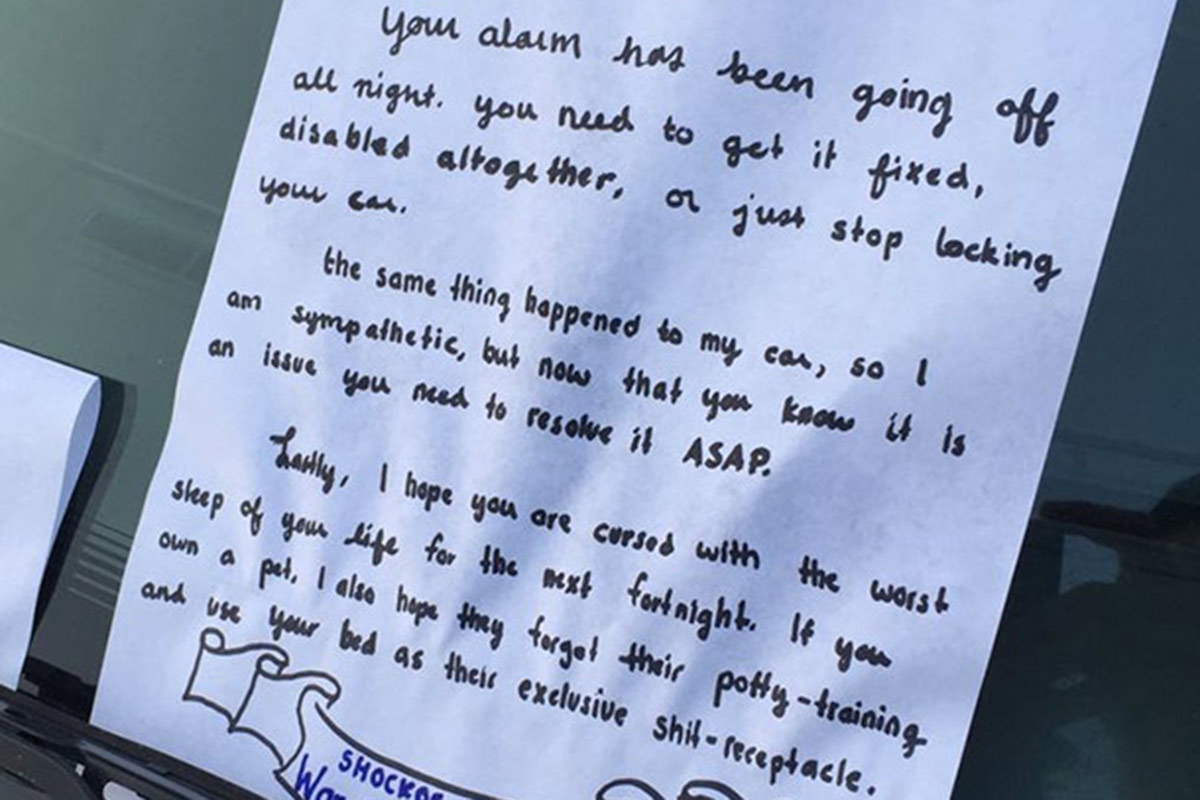 Your alarm has been going off
all night. you need to get it fixed,
disabled altogether, or just stop locking
your car.
the same thing happened to my car, so I
am sympathetic, but now that you know it is
an issue you need to resolve it ASAP.
Lastly, I hope you are cursed with the worst
sleep of your life for the next fortnight. If you
own a pet, I also hope they forget their potty-training
and use your bed as their exclusive shit-receptacle.